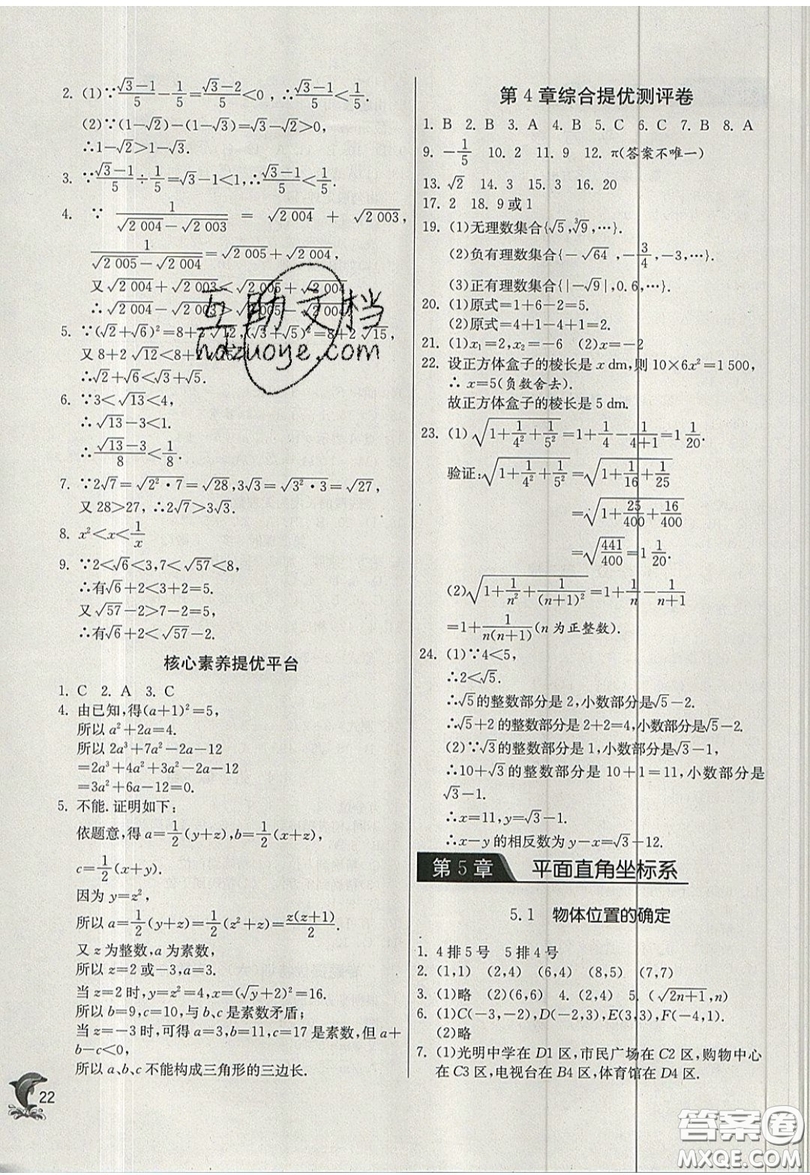 2. (1)∵(√3-1)/5-1/5=(√3-2)/5<0，∴(√3-1)/5<1/5.
(2)∵(1-√2)-(1-√3)=√3-√2>0，
∴1-√2>1-√3.
3. ∵(√3-1)/5÷1/5=√3-1<1，∴(√3-1)/5<1/5.
4. ∵ 1/(√2 004-√2 003) = √2 004 + √2 003，
1/(√2 005-√2 004)=√2 005+√2 004，
又√2 004+√2 003<√2 005+√2 004，
∴√2 004-√2 003>√2 005-√2 004.
5. ∵(√2+√6)²=8+2√12，(√3+√5)²=8+2√15，
又8+2√12<8+2√15，
∴√2+√6<√3+√5.
6. ∵3<√13<4，
∴√13-3<1.
∴(√13-3)/8<1/8.
7. ∵2√7=√(2²·7)=√28，3√3=√(3²·3)=√27，
又28>27，∴2√7>3√3.
8. x²<x<1/x
9. ∵2<√6<3，7<√57<8，
∴有√6+2<3+2=5.
又√57-2>7-2=5，
∴有√6+2<√57-2.
核心素养提优平台
1. C 2. A 3. C
4. 由已知，得(a+1)²=5，
所以a²+2a=4.
所以2a³+7a²-2a-12
=2a³+4a²+3a²-2a-12
=3a²+6a-12=0.
5. 不能. 证明如下：
依题意，得a=1/2(y+z)，b=1/2(x+z)，
c=1/2(x+y).
因为y=z²，
所以a=1/2(y+z)=1/2(z²+z)=z(z+1)/2.
又z为整数，a为素数，
所以z=2或-3，a=3.
当z=2时，y=z²=4，x=(√y+z)²=16.
所以b=9，c=10，与b、c是素数矛盾；
当z=-3时，可得a=3，b=11，c=17是素数，但a+
所以a、b、c不能构成三角形的三边长.
22
第4章综合提优测评卷
1. B 2. B 3. A 4. B 5. C 6. C 7. B 8. A
9. -1/5 10. 2 11. 9 12. π(答案不唯一)
13. √2 14. 3 15. 3 16. 20
17. 2 18. 9或1
19. (1)无理数集合{√5，∛9，…}.
(2)负有理数集合{-√64，-3/4，-3，…}.
(3)正有理数集合{|-√9|，0.6，…}.
20. (1)原式=1+6-2=5.
(2)原式=4+1-4+1=2.
21. (1)x₁=2，x₂=-6 (2)x=-2
22. 设正方体盒子的棱长是x dm，则10×6x²=1 500，
∴ x=5(负数舍去).
故正方体盒子的棱长是5 dm.
23. (1)√(1+1/4²+1/5²)=1+1/4-1/(4+1)=1 1/20.
验证：√(1+1/4²+1/5²)=√(1+1/16+1/25)
=√(1+25/400+16/400)
=√(441/400)=1 1/20.
(2)√(1+1/n²+1/(n+1)²)=1+1/n-1/(n+1)
=1+1/(n(n+1))(n为正整数).
24. (1)∵4<5，
∴2<√5.
∴√5的整数部分是2，小数部分是√5-2.
∴√5+2的整数部分是2+2=4，小数部分是√5-2.
(2)∵√3的整数部分是1，小数部分是√3-1，
∴10+√3的整数部分是10+1=11，小数部分是
√3-1.
∴x=11，y=√3-1.
∴x-y的相反数y-x=√3-12.
第5章 平面直角坐标系
5.1 物体位置的确定
1. 4排5号 5排4号
2. (1,1) (2,4) (6,4) (8,5) (7,7)
3. (1)略 (2)(6,6) 4. (2,4) 5. (√(2n+1)，n)
6. (1)C(-3,-2)，D(-2,3)，E(3,3)，F(4,-1)
(2)略
7. (1)光明中学在D1区，市民广场在C2区，购物中心
在C3区，电视台在B4区，体育馆在E4区.
互助文档
hdzuoye.com
答案圈
MXQE.COM